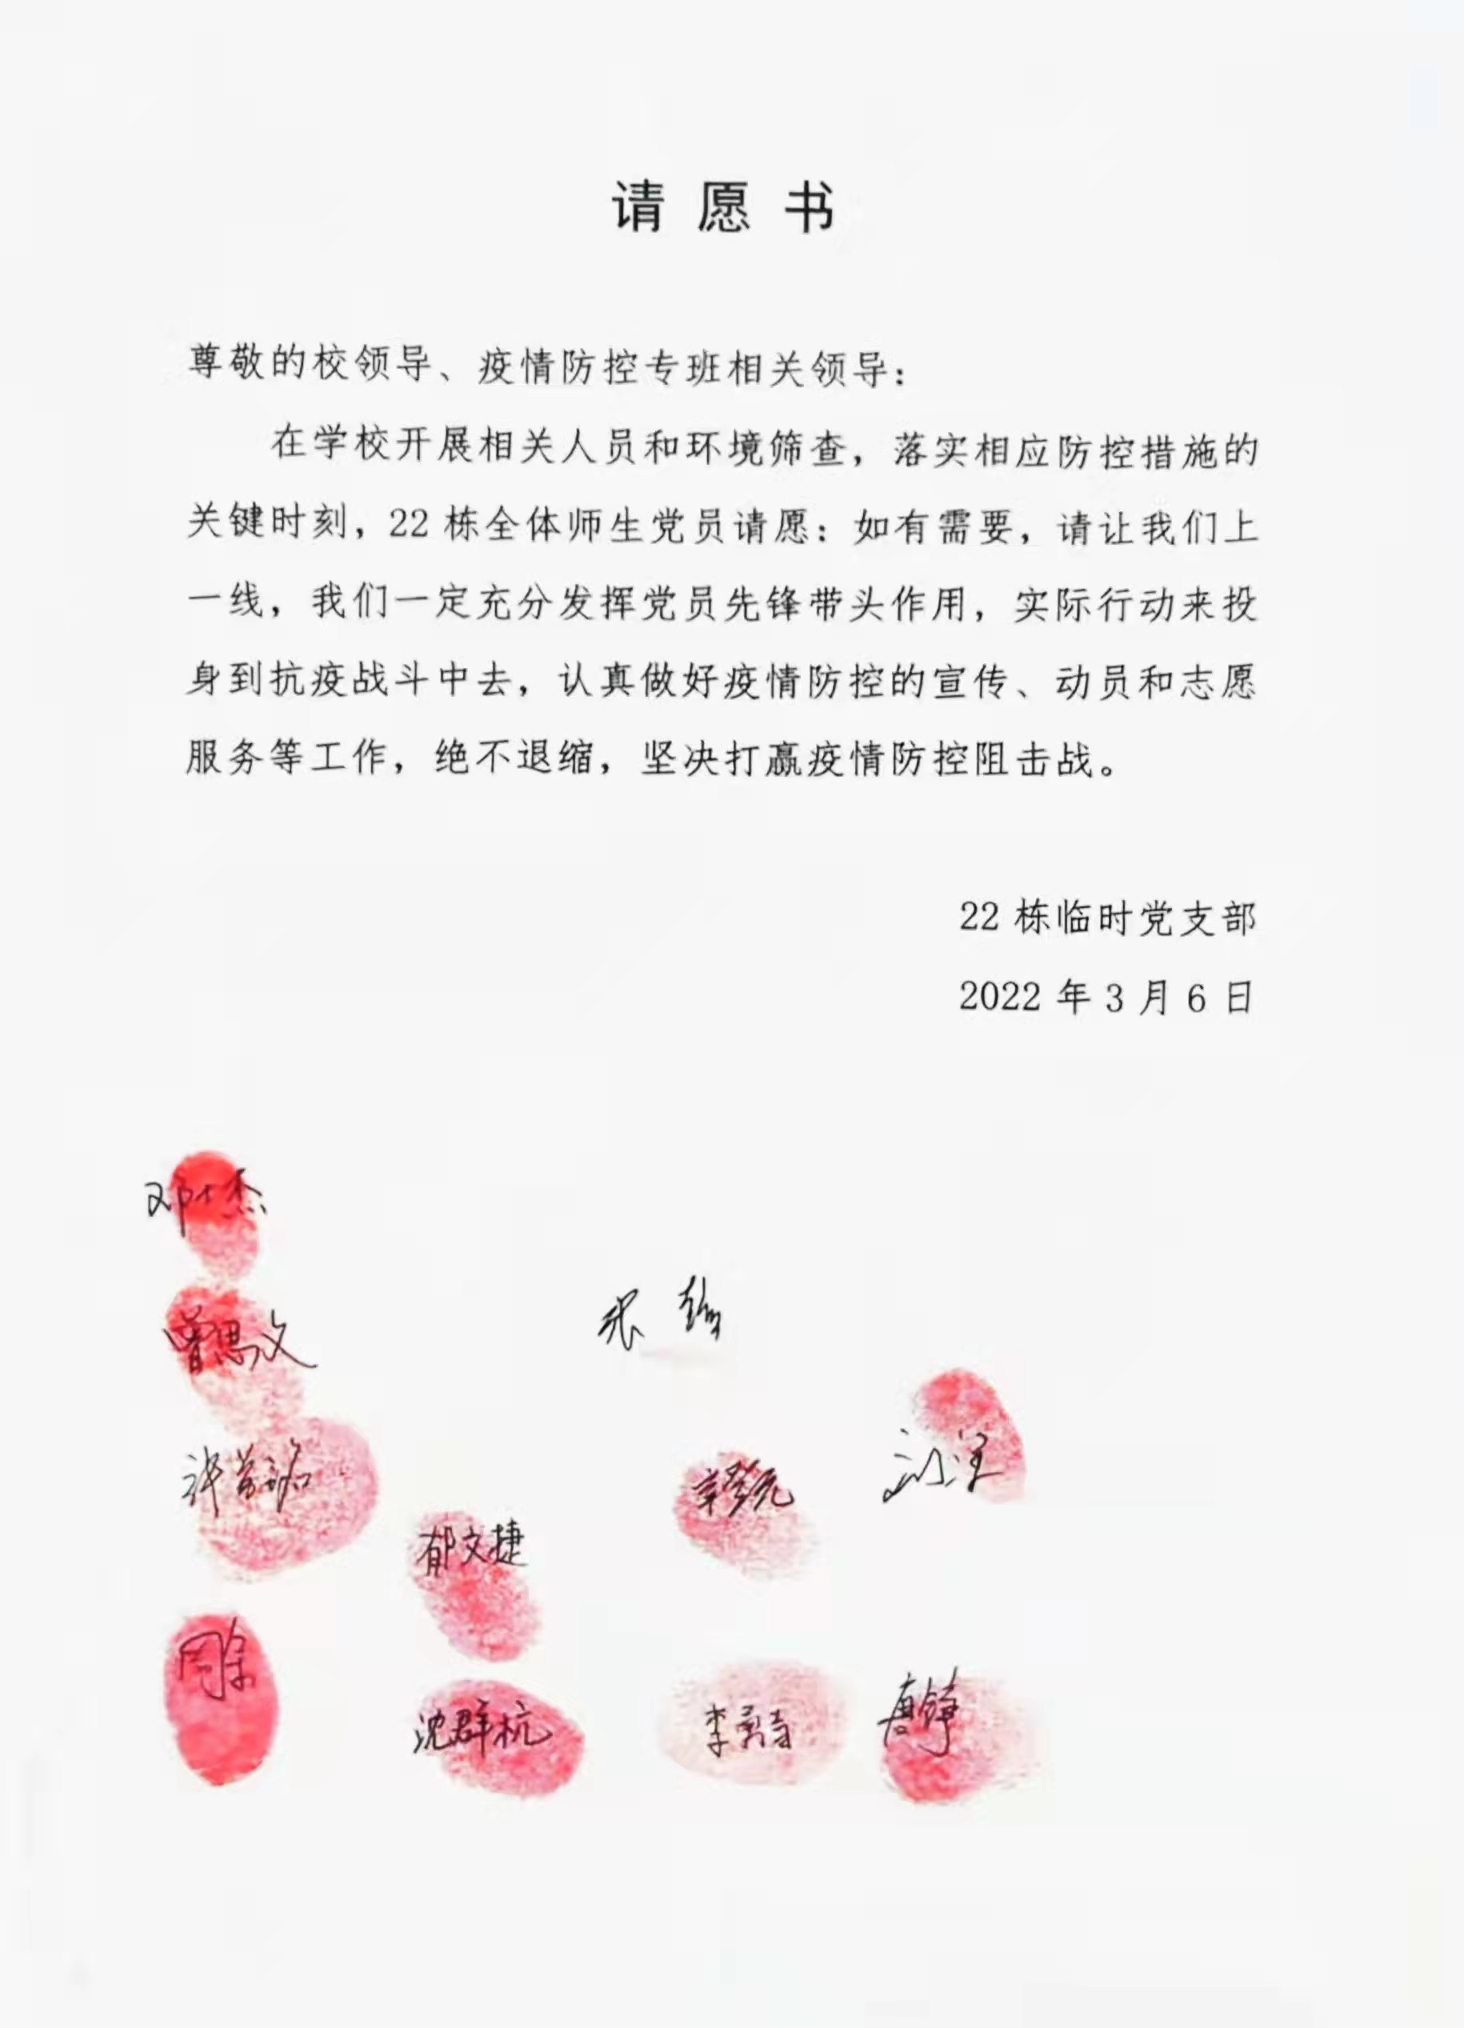 请愿书
尊敬的校领导、疫情防控专班相关领导：
在学校开展相关人员和环境筛查，落实相应防控措施的
关键时刻，22栋全体师生党员请愿：如有需要，请让我们上
一线，我们一定充分发挥党员先锋带头作用，实际行动来投
身到抗疫战斗中去，认真做好疫情防控的宣传、动员和志愿
服务等工作，绝不退缩，坚决打赢疫情防控阻击战。
22栋临时党支部
2022年3月6日
曾思文
郁文捷
沈群杭
唐铮